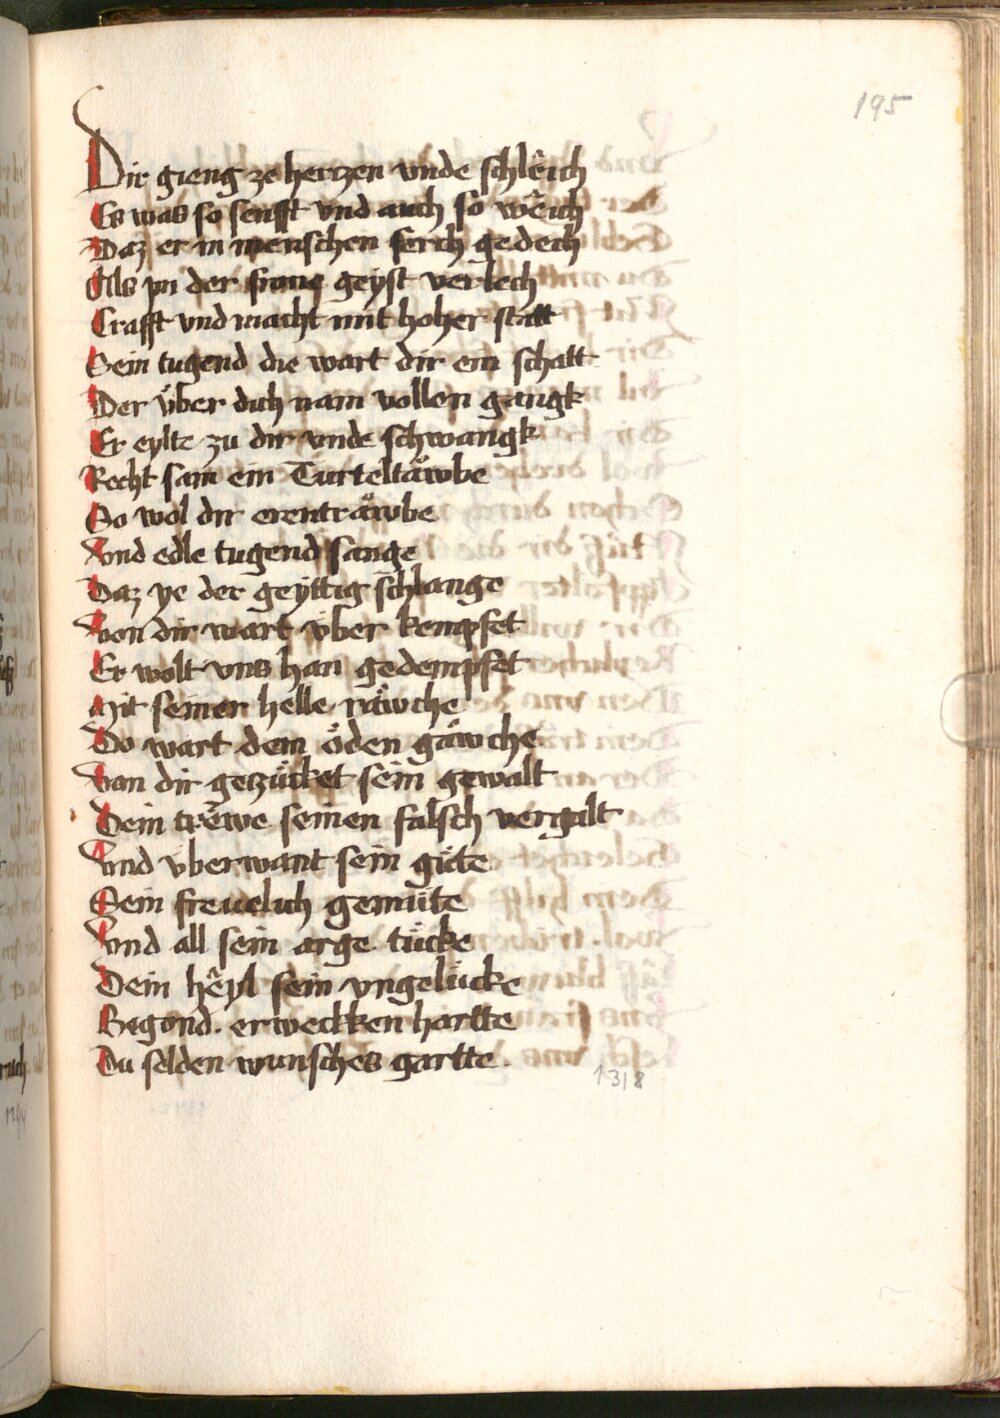 195
Dir gieng ze hertzen vnde schlêich
Es was so senfft vnd auch so wêich
Daz er in menschen ferch gedech
Als yn der frone geyst verlech
Crafft vnd macht mit hoher statt
Sein tugend die wart dir ein schatt
Der v̈ber dich nam vollen gangk
Er eylte zu dir vnde schwangk
Recht sam ein Turteltäwbe
So wol dir erenträwbe
Vnd edle tugend sange
Daz ye der geyttig schlange
Von dir wart v̈ber kempfet
Er wolt vns han gedempfet
Mit seiner helle räwche
Do wart dem öden gäwche
Van dir gezücket sein gewalt
Dein trêwe seinen falsch vergalt
Vnd v̈berwant sein güte
Sein freuelich gemüte
Vnd all sein arge tücke
Dein hêyl sein vngelücke
Begond erweckken hartte
Du selden wunsches gartte
1318